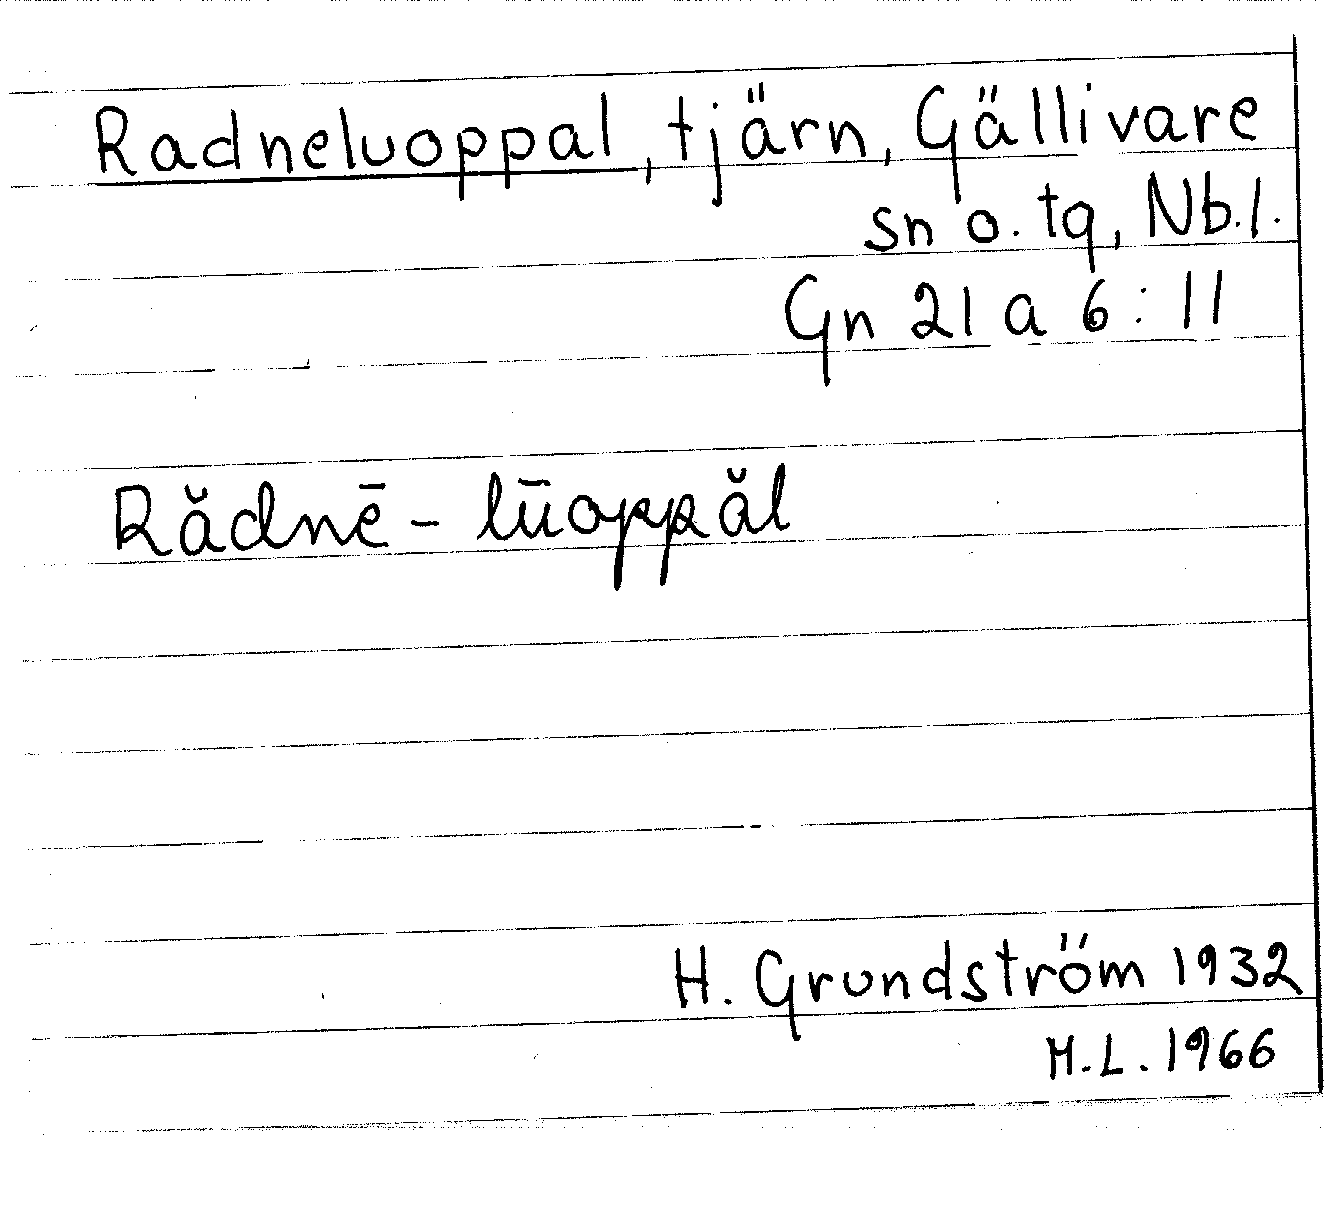 Radneluoppal, tjärn, Gällivare
sn o. tq, Nb.l.
Gn 21 a 6 : 11
Rădnē - lūoppăl
H. Grundström 1932
M.L. 1966